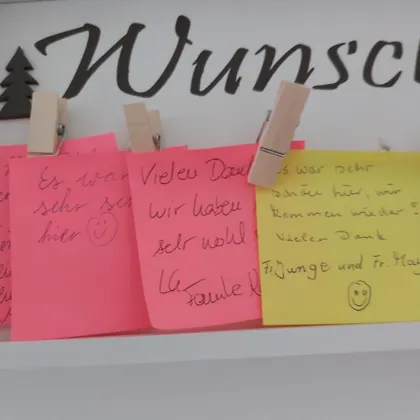 Wunsch
Es war
sehr
hier
Vielen Dank
wir haben
sehr wohl
LG
Familie K
es war sehr
schön hier, wir
kommen wieder
Vielen Dank
Fr. Junge und Fr. May